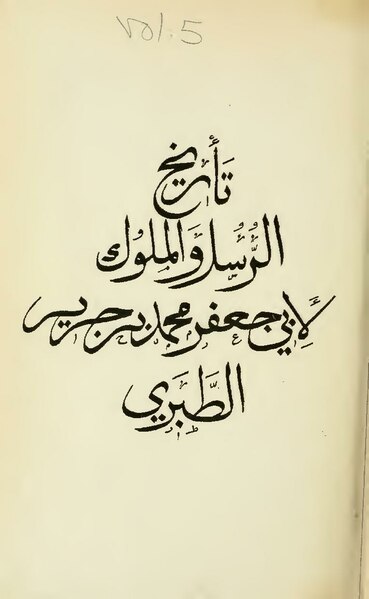 vol. 5
تَأريخ
الرُسُل وَالملوك
لأَبي جعفر محمد بن جرير
الطَّبَرِي